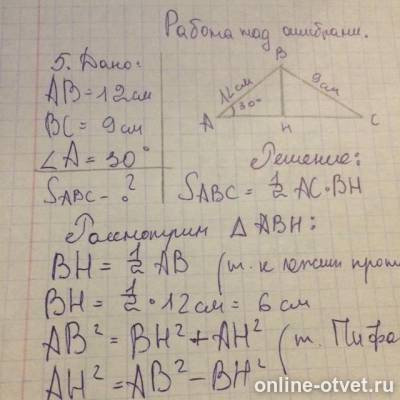 Работа над ошибками.
5. Дано:
AB = 12 см
BC = 9 см
∠A = 30°
S ABC - ?
B
12 см
9 см
30°
A
H
C
Решение:
S ABC = 1/2 AC · BH
Рассмотрим △ ABH:
BH = 1/2 AB (т. к лежит прот
BH = 1/2 · 12 см = 6 см
AB² = BH² + AH²
(т. Пифа
AH² = AB² - BH²
online-otvet.ru